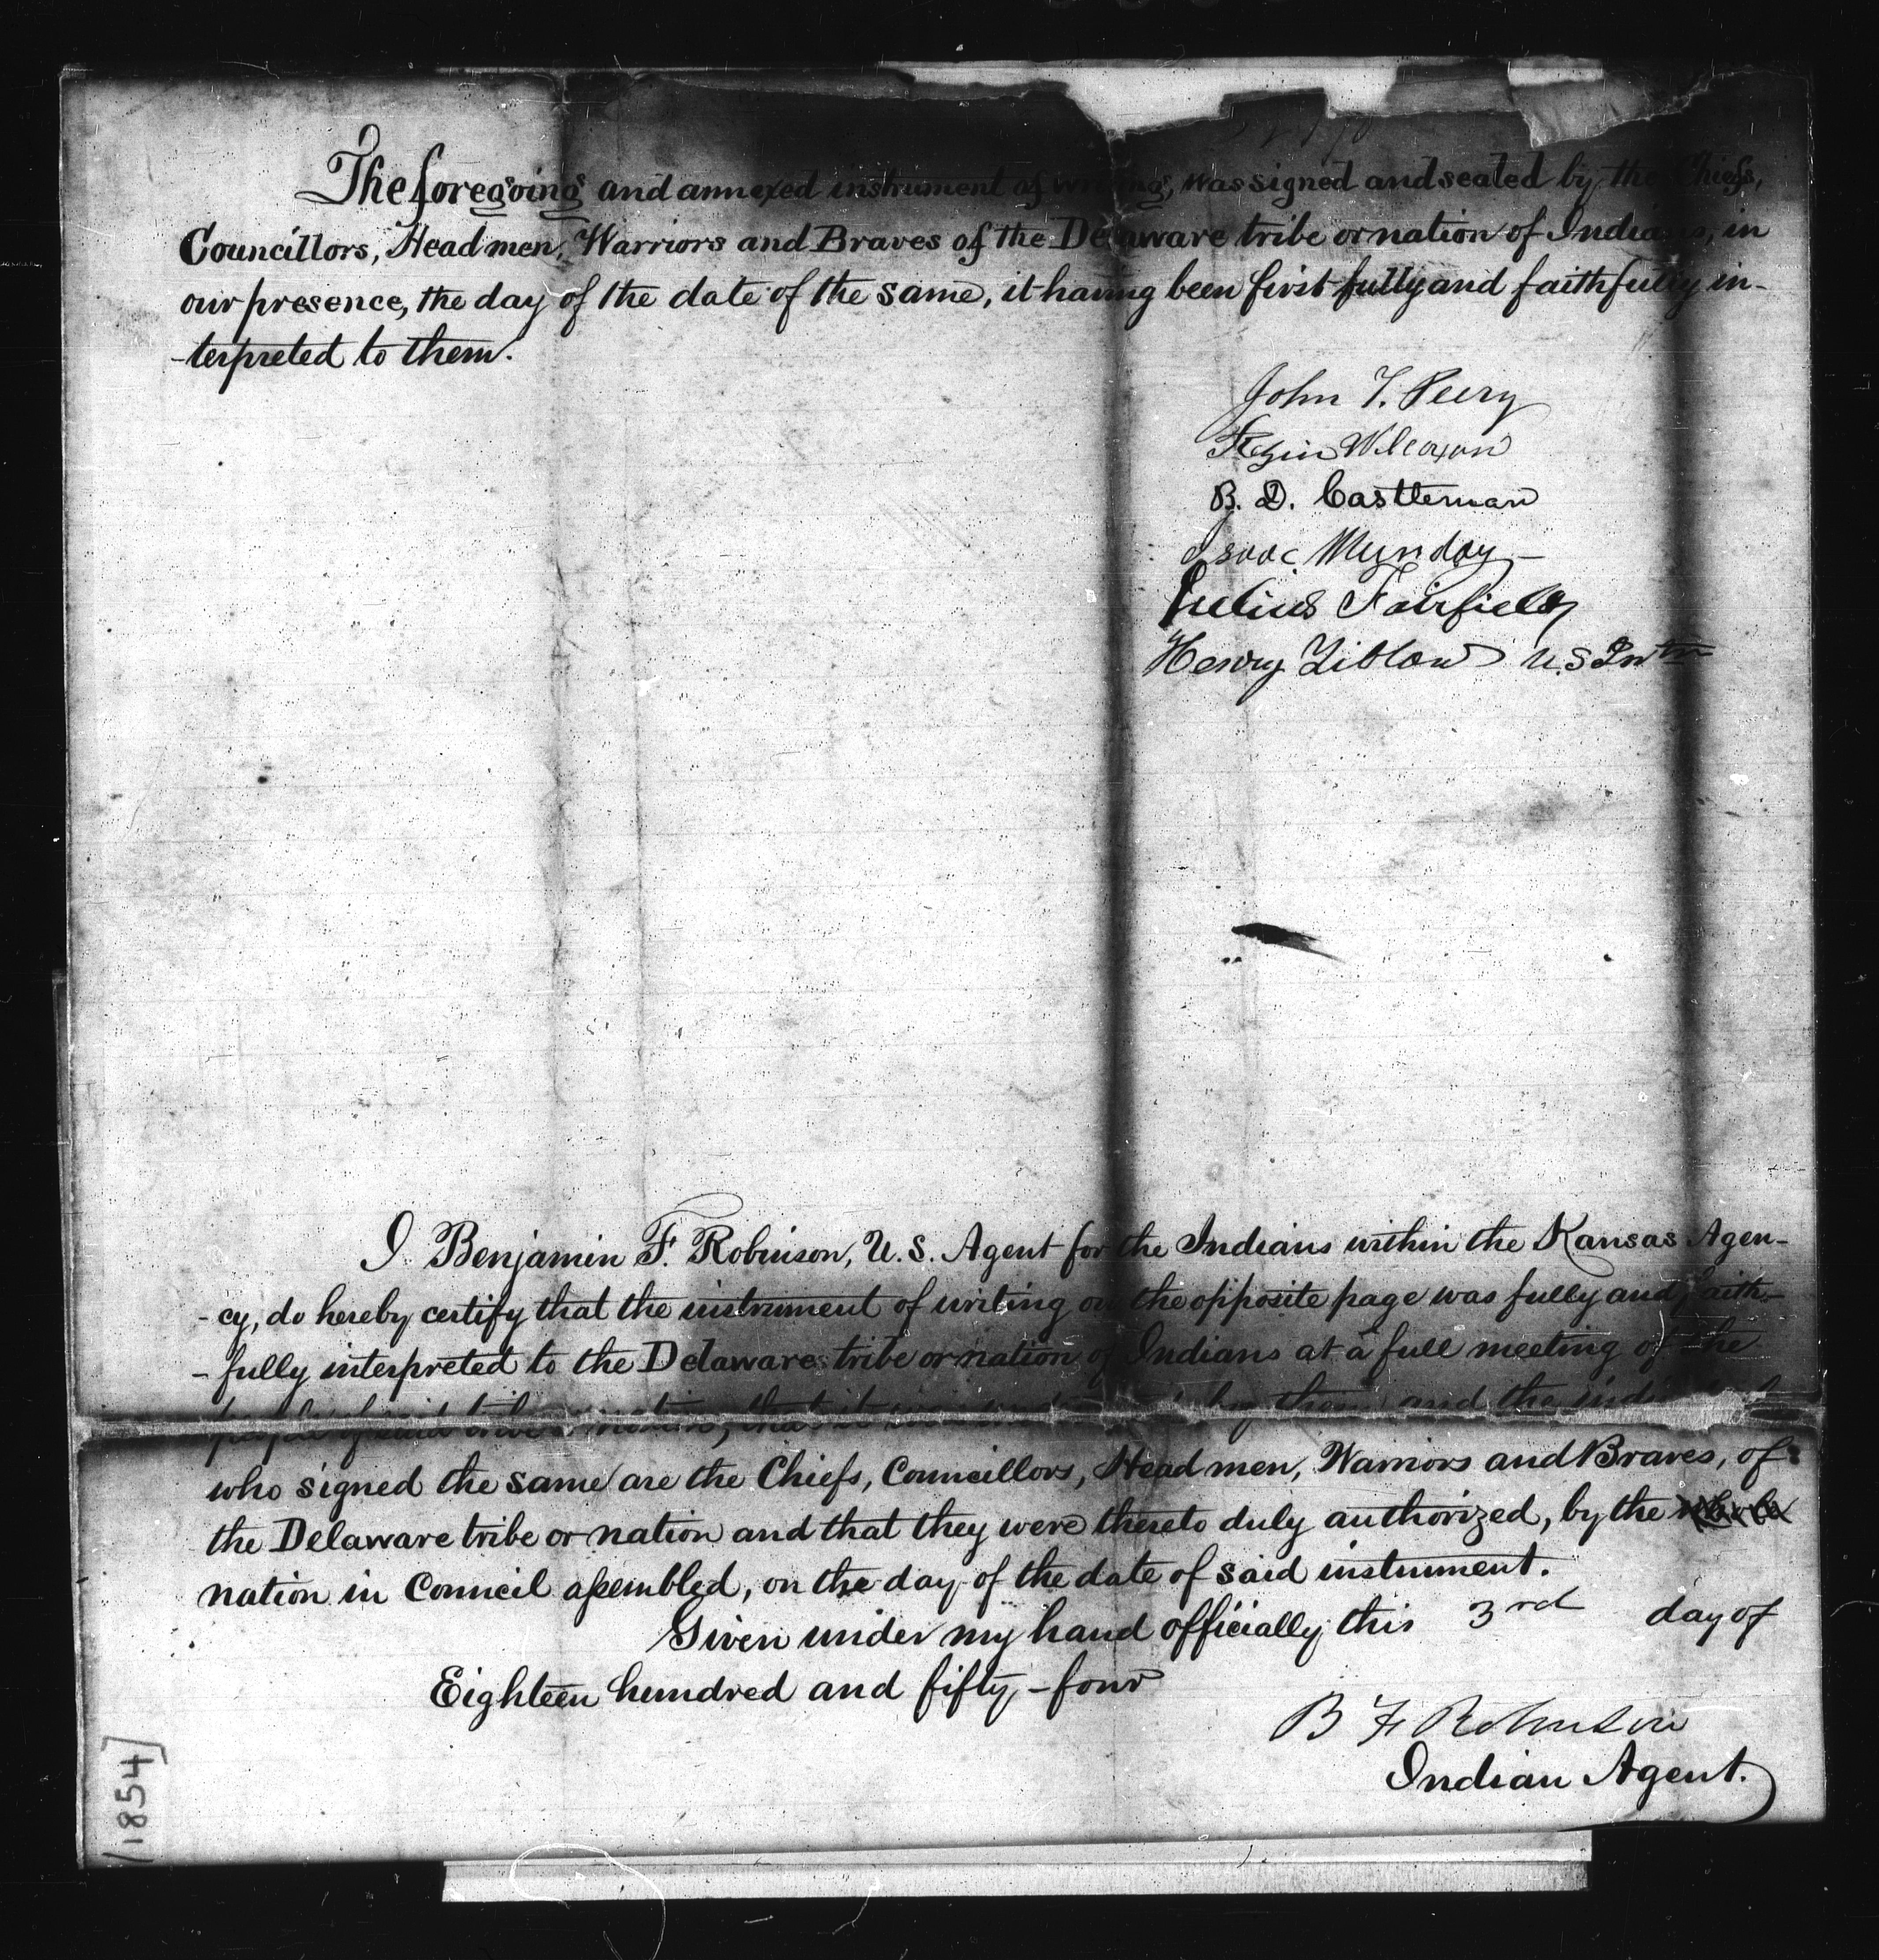 The foregoing and annexed instrument of writing, was signed and sealed by the Chiefs,
Councillors, Head men, Warriors and Braves of the Delaware tribe or nation of Indians, in
our presence, the day of the date of the same, it having been first fully and faithfully in-
-terpreted to them.
John T. Peery
Rezin Wilcoxon
B. D. Castleman
Isaac Munday
Julius Fairfield
Henry Tiblow U.S Intr
I Benjamin F. Robinson, U.S. Agent for the Indians within the Kansas Agen-
-cy, do hereby certify that the instrument of writing on the opposite page was fully and faith-
-fully interpreted to the Delaware tribe or nation of Indians at a full meeting of the
people of said tribe or nation, that it was by them and the
who signed the same are the Chiefs, Councillors, Head men, Warriors and Braves, of
the Delaware tribe or nation and that they were thereto duly authorized, by the
nation in Council assembled, on the day of the date of said instrument.
Given under my hand officially this 3rd day of
Eighteen hundred and fifty-four
B F Robinson
Indian Agent.
1854]